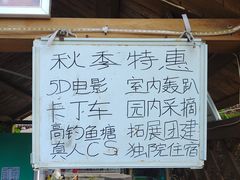 秋季特惠
5D电影 室内轰趴
卡丁车 园内采摘
高钓鱼塘 拓展团建
真人CS 独院住宿